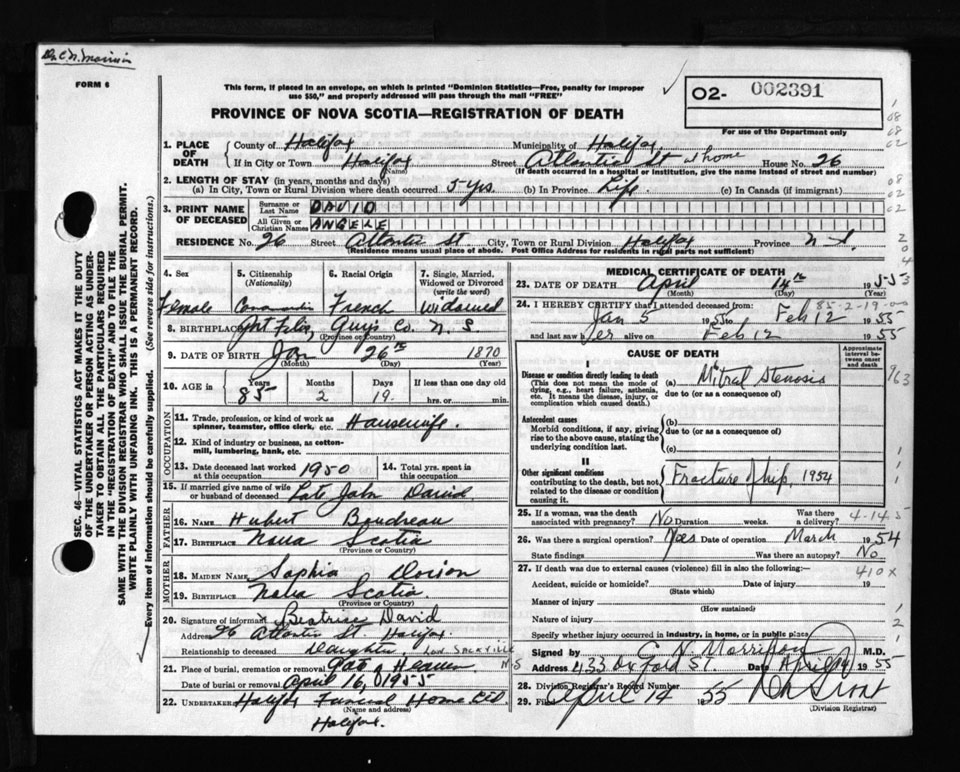 Dr. C. N. Morrison
FORM 6
This form, if placed in an envelope, on which is printed "Dominion Statistics—Free, penalty for improper
use $50," and properly addressed will pass through the mail "FREE"
PROVINCE OF NOVA SCOTIA—REGISTRATION OF DEATH
02- 002391
For use of the Department only
1. PLACE OF DEATH County of Halifax Municipality of Halifax
If in City or Town Halifax (Name) Street Atlantic St at home House No. 26
(If death occurred in a hospital or institution, give the name instead of street and number)
2. LENGTH OF STAY (in years, months and days)
(a) In City, Town or Rural Division where death occurred 5 yrs. (b) In Province Life. (c) In Canada (if immigrant)
3. PRINT NAME OF DECEASED Surname or Last Name DAVID
All Given or Christian Names ANGELE
RESIDENCE No. 26 Street Atlantic St. City, Town or Rural Division Halifax Province N.S.
(Residence means usual place of abode. Post Office Address for residents in rural parts not sufficient)
4. Sex Female
5. Citizenship (Nationality) Canadian
6. Racial Origin French
7. Single, Married, Widowed or Divorced (write the word) Widowed
8. BIRTHPLACE Guys Co. N.S. (Province or Country)
9. DATE OF BIRTH Jan 26th 1870
(Month) (Day) (Year)
10. AGE in Years 85 Months 2 Days 19. If less than one day old
hrs. or min.
OCCUPATION
11. Trade, profession, or kind of work as spinner, teamster, office clerk, etc. Housewife.
12. Kind of industry or business, as cotton-mill, lumbering, bank, etc.
13. Date deceased last worked at this occupation 1950 14. Total yrs. spent in this occupation
15. If married give name of wife or husband of deceased Late John David
FATHER
16. NAME Hubert Boudreau
17. BIRTHPLACE Nova Scotia
(Province or Country)
MOTHER
18. MAIDEN NAME Sophia Dorion
19. BIRTHPLACE Nova Scotia
(Province or Country)
20. Signature of informant Beatrice David
Address 26 Atlantic St. Halifax.
Relationship to deceased Daughter, Low. SACKVILLE
21. Place of burial, cremation or removal Gate of Heaven N-S
Date of burial or removal April 16, 1955
22. UNDERTAKER Halifax Funeral Home Ltd
(Name and address)
Halifax.
MEDICAL CERTIFICATE OF DEATH
23. DATE OF DEATH April 14th 1955
(Month) (Day) (Year)
85-2-19-00
24. I HEREBY CERTIFY that I attended deceased from:
Jan 5 1955 to Feb 12 1955
and last saw her alive on Feb 12 1955
CAUSE OF DEATH
Approximate interval between onset and death
I
Disease or condition directly leading to death
(This does not mean the mode of dying, e.g., heart failure, asthenia, etc. It means the disease, injury, or complication which caused death.)
(a) Mitral Stenosis
due to (or as a consequence of)
Antecedent causes
Morbid conditions, if any, giving rise to the above cause, stating the underlying condition last.
(b)
due to (or as a consequence of)
(c)
II
Other significant conditions
contributing to the death, but not related to the disease or condition causing it.
Fracture of hip, 1954
25. If a woman, was the death associated with pregnancy? No Duration weeks. Was there a delivery?
4-14-5
26. Was there a surgical operation? Yes Date of operation March 1954
State findings Was there an autopsy? No
27. If death was due to external causes (violence) fill in also the following:—
410X
Accident, suicide or homicide? Date of injury 19
(State which)
Manner of injury
(How sustained)
Nature of injury
Specify whether injury occurred in industry, in home, or in public place
Signed by C N Morrison M.D.
Address 433 Oxford St. Date April 14 1955
28. Division Registrar's Record Number
29. Filed April 14 1955
(Division Registrar)
SEC. 46—VITAL STATISTICS ACT MAKES IT THE DUTY
OF THE UNDERTAKER OR PERSON ACTING AS UNDER-
TAKER TO OBTAIN ALL THE PARTICULARS REQUIRED
IN THE "REGISTRATION OF DEATH" AND TO FILE THE
SAME WITH THE DIVISION REGISTRAR WHO SHALL ISSUE THE BURIAL PERMIT.
WRITE PLAINLY WITH UNFADING INK. THIS IS A PERMANENT RECORD.
Every item of information should be carefully supplied. (See reverse side for instructions.)